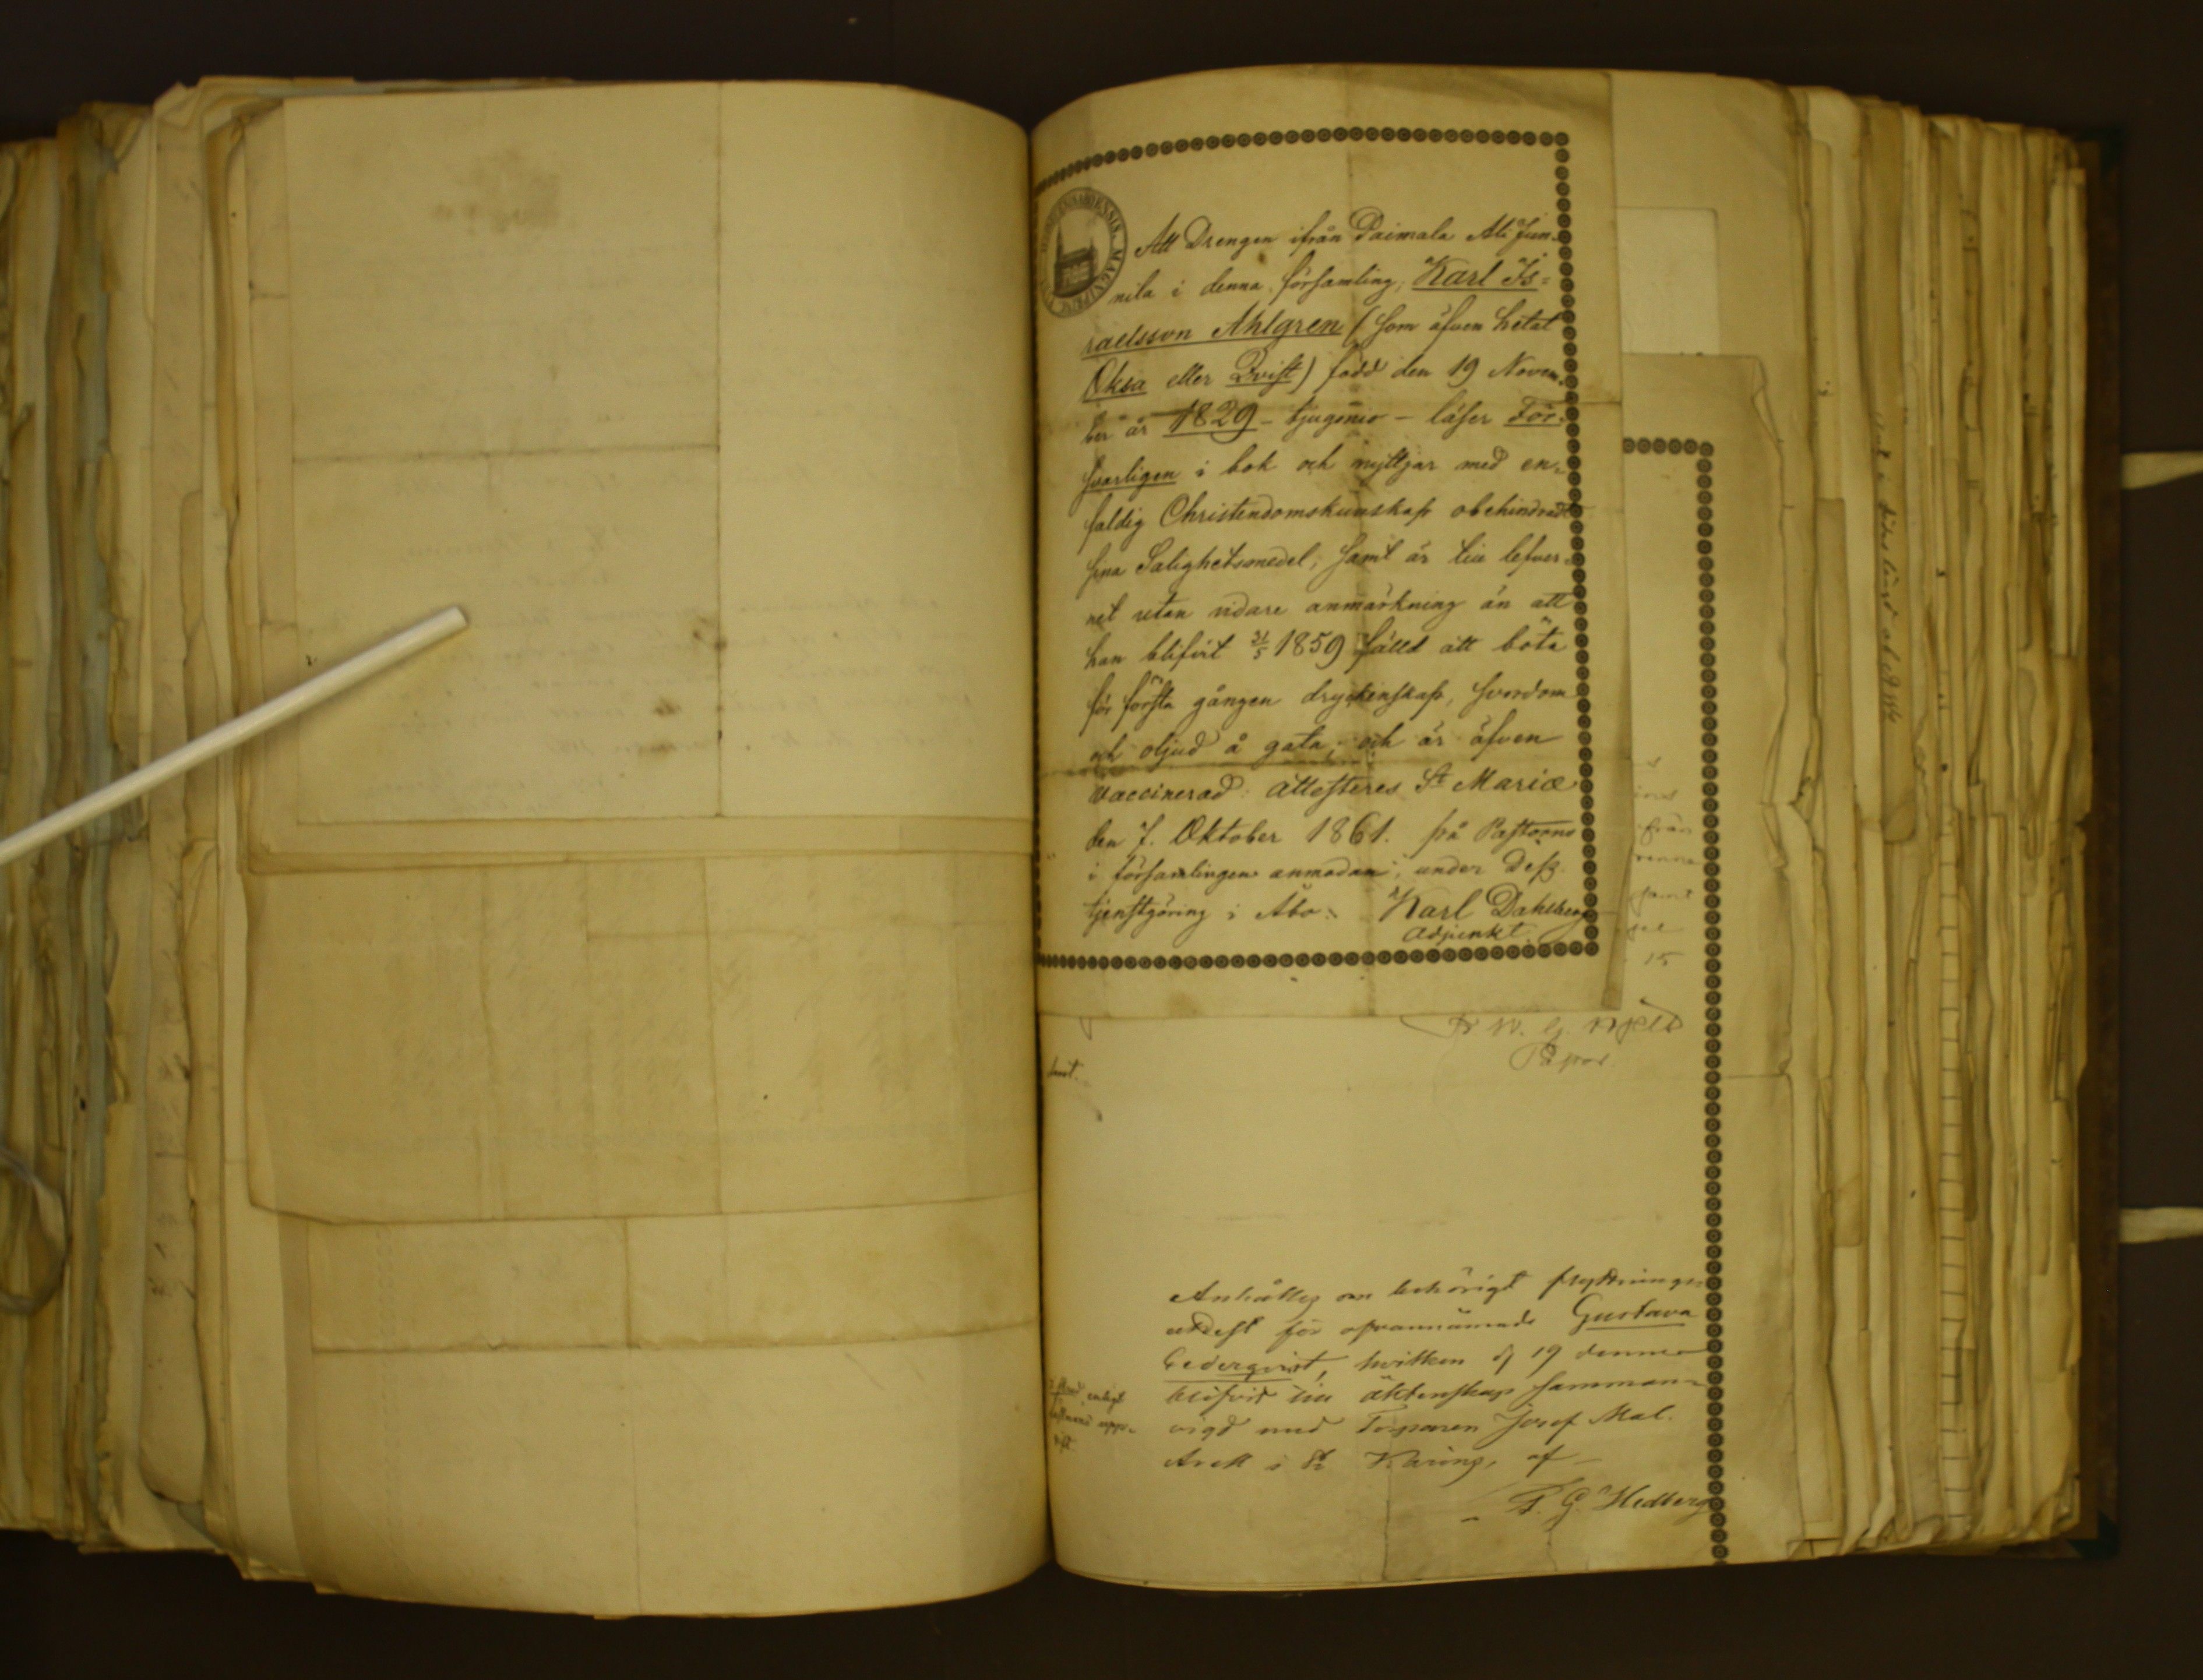 Att Drengen ifrån Paimala Ali Jun-
nila i denna församling, Karl Is=
raelsson Ahlgren (som äfven hetat
Oksa eller Qvist) född den 19 Novem-
ber år 1829 - tjugonio - läser För-
svarligen i bok och nyttjar med en-
faldig Christendomskunskap obehindradt
sina Salighetsmedel; samt är till lefver-
net utan vidare anmärkning än att
han blifvit 31/5 1859 fälld att böta
för första gången dryckenskap, svordom
och oljud å gata; och är äfven
vaccinerad: attesteres St Mariæ
den 7. Oktober 1861. på Pastorns
i församlingen anmodan, under dess
tjenstgöring i Åbo:
Karl Dahlberg
Adjunkt.
från
denna
samt
15
Anhålles om behörigt flyttnings
attest för ofvannämnde Gustava
Cederqvist, hvilken d 19 dennes
blifvit till äktenskap samman-
vigd med Torparen Josef Mal.
i St Karins, af
F. G. Hedberg
enligt